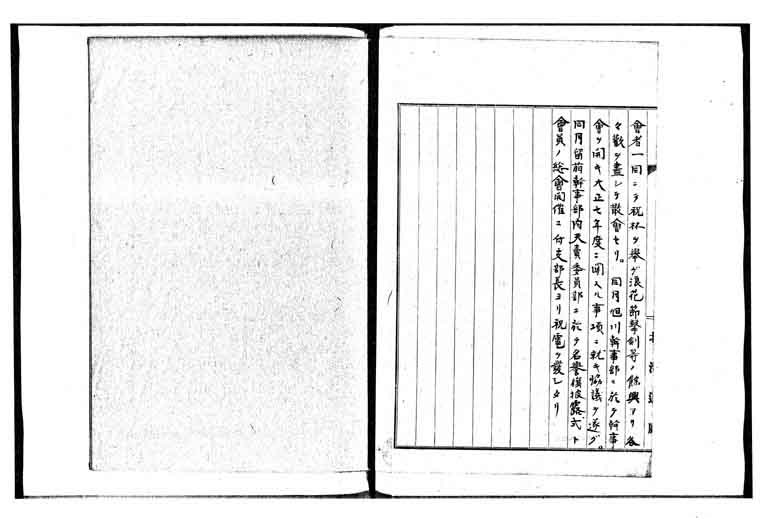 會者一同ニテ祝杯ヲ擧ゲ浪花節擊剣等ノ餘興アリ各
々歡ヲ盡シテ散會セリ。同月旭川幹事部ニ於テ幹事
會ヲ開キ大正七年度ニ関スル事項ニ就キ協議ヲ遂グ。
同月留萠幹事部内天賣委員部ニ於テ名譽旗披露式ト
會員ノ總會開催ニ付支部長ヨリ祝電ヲ發シタリ
北海道廳